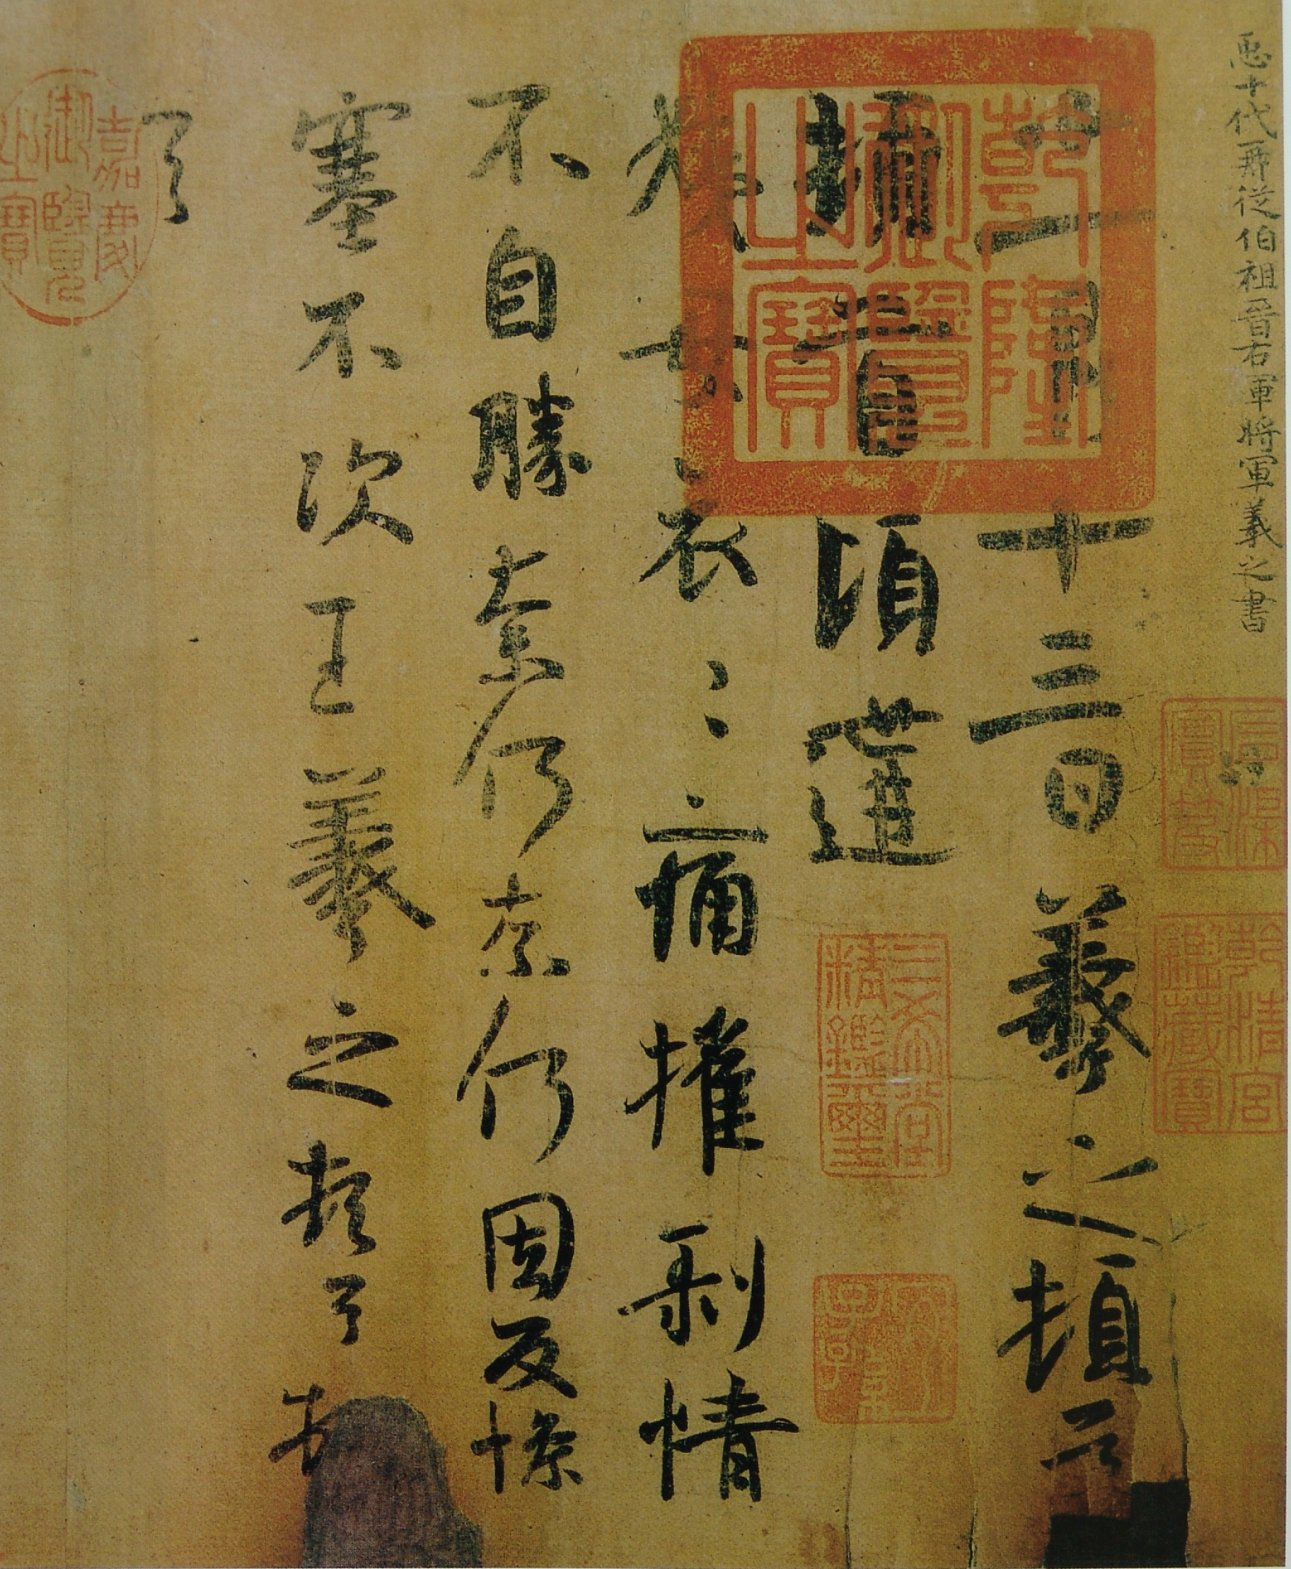 臣十代再從伯祖晉右軍將軍羲之書
十一月十三日羲之頓首
頓首頃遘
姨母哀〻痛摧剝情
不自勝奈何奈何因反慘
塞不次王羲之頓首頓
首
乾隆御覽之寶
石渠寶笈
乾清宮鑑藏寶
三希堂精鑑璽
嘉慶御覽之寶